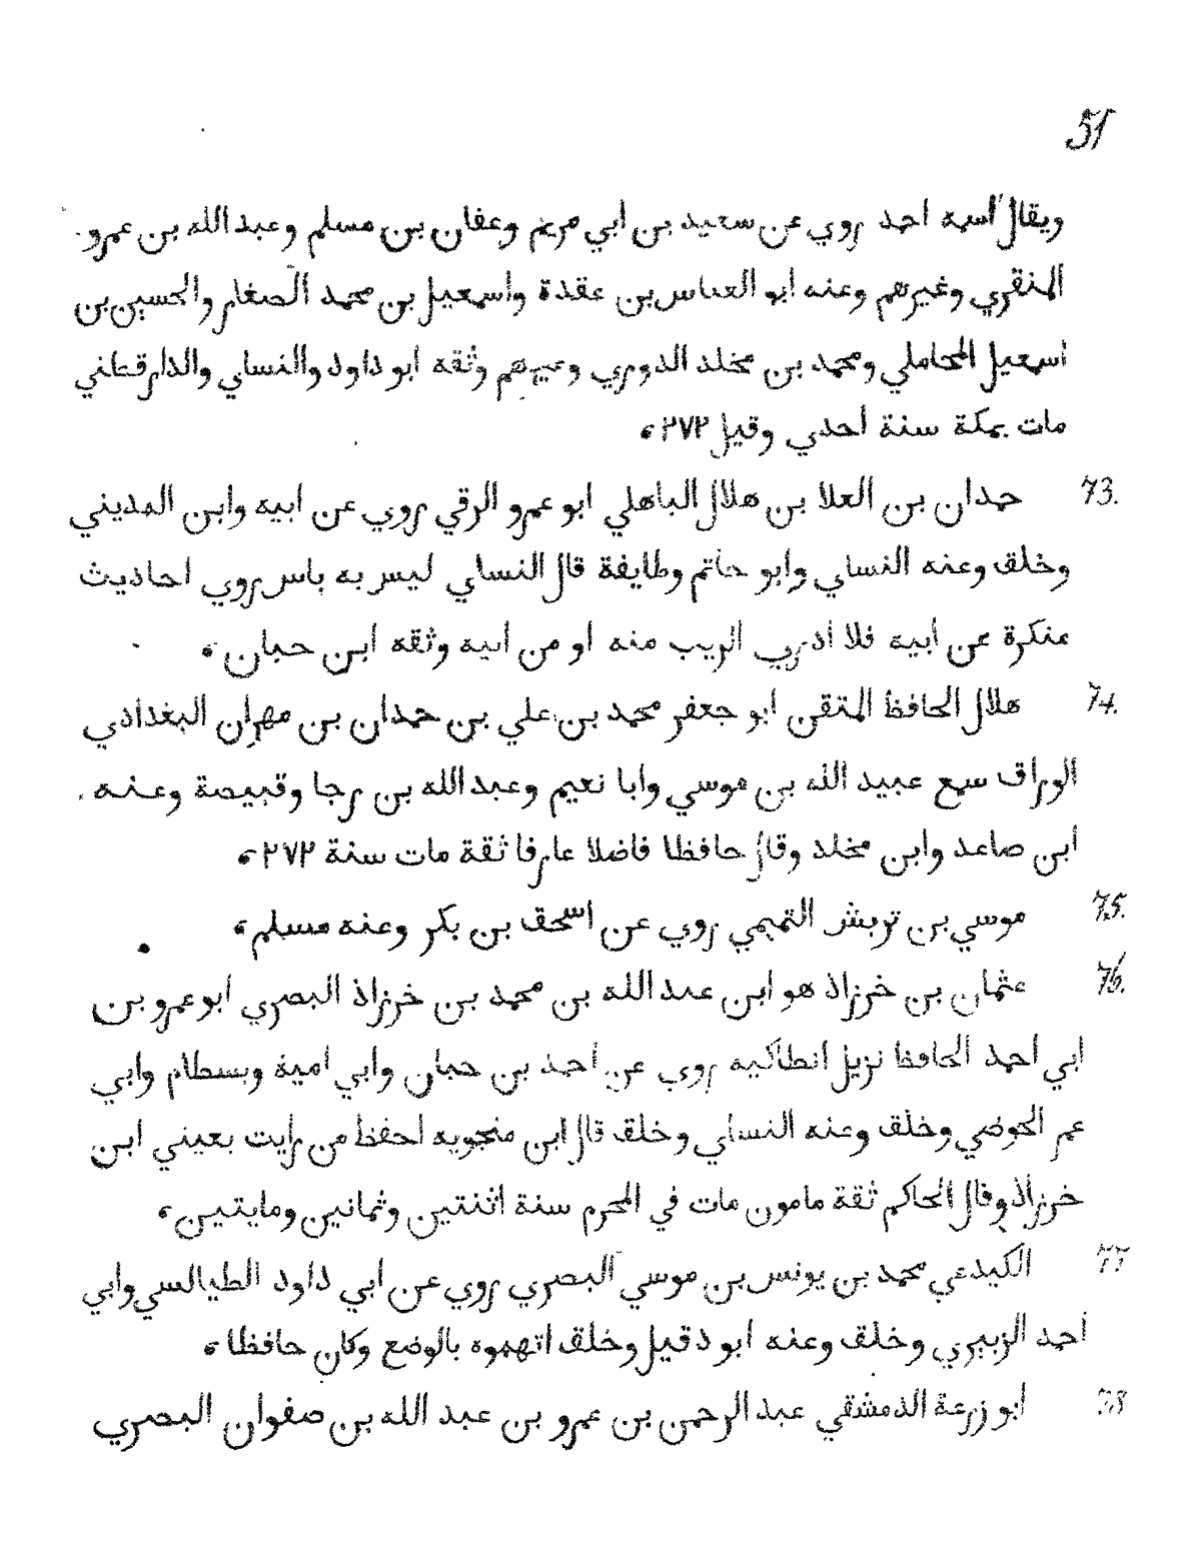 51
ويقال اسمه احمد روي عن سعيد بن ابي مريم وعفان بن مسلم وعبد الله بن عمرو
المنقري وغيرهم وعنه ابو العباس بن عقدة واسمعيل بن محمد الصغار والحسين بن
اسمعيل المحاملي ومحمد بن مخلد الدوري وغيرهم وثقه ابو داود والنساي والدارقتاني
مات بمكة سنة أحدي وقيل ٢٧٢ ۰
73. حمدان بن العلا بن هلال الباهلي ابو عمرو الرقي روي عن ابيه وابن المديني
وخلق وعنه النساي وابو حاتم وطايفة قال النساي ليس به باس روي احاديث
منكرة عن ابيه فلا أدري الريب منه او من ابيه وثقه ابن حبان ۰
74. هلال الحافظ المتقن ابو جعفر محمد بن علي بن حمدان بن مهران البغدادي
الوراق سمع عبيد الله بن موسي وابا نعيم وعبد الله بن رجا وقبيصة وعنه
ابن صاعد وابن مخلد وقال حافظا فاضلا عارفا ثقة مات سنة ٢٧٢ ۰
75. موسي بن تربش التميمي روي عن اسحق بن بكر وعنه مسلم ۰
76. عثمان بن خرزاذ هو ابن عبد الله بن محمد بن خرزاذ البصري ابو عمرو بن
ابي احمد الحافظ نزيل انطاكيه روي عن احمد بن حبان وابي امية وبسطام وابي
عمر الحوضي وخلق وعنه النساي وخلق قال ابن منجويه احفظ من رأيت بعيني ابن
خرزاذ وقال الحاكم ثقة مامون مات في المحرم سنة اثنتين وثمانين ومايتين ۰
77 الكيدعي محمد بن يونس بن موسي البصري روي عن ابي داود الطيالسي وابي
أحمد الزبيري وخلق وعنه ابو دقيل وخلق اتهموه بالوضع وكان حافظا ۰
78 ابو زرعة الدمشقي عبد الرحمن بن عمرو بن عبد الله بن صفوان البصري